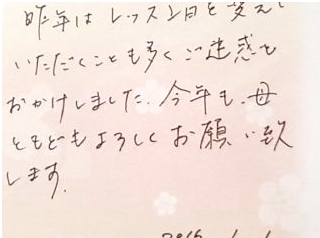 昨年は レッスン日を変えて
いただくことも多くご迷惑を
おかけしました。今年も、母
ともどもよろしくお願い致
します。